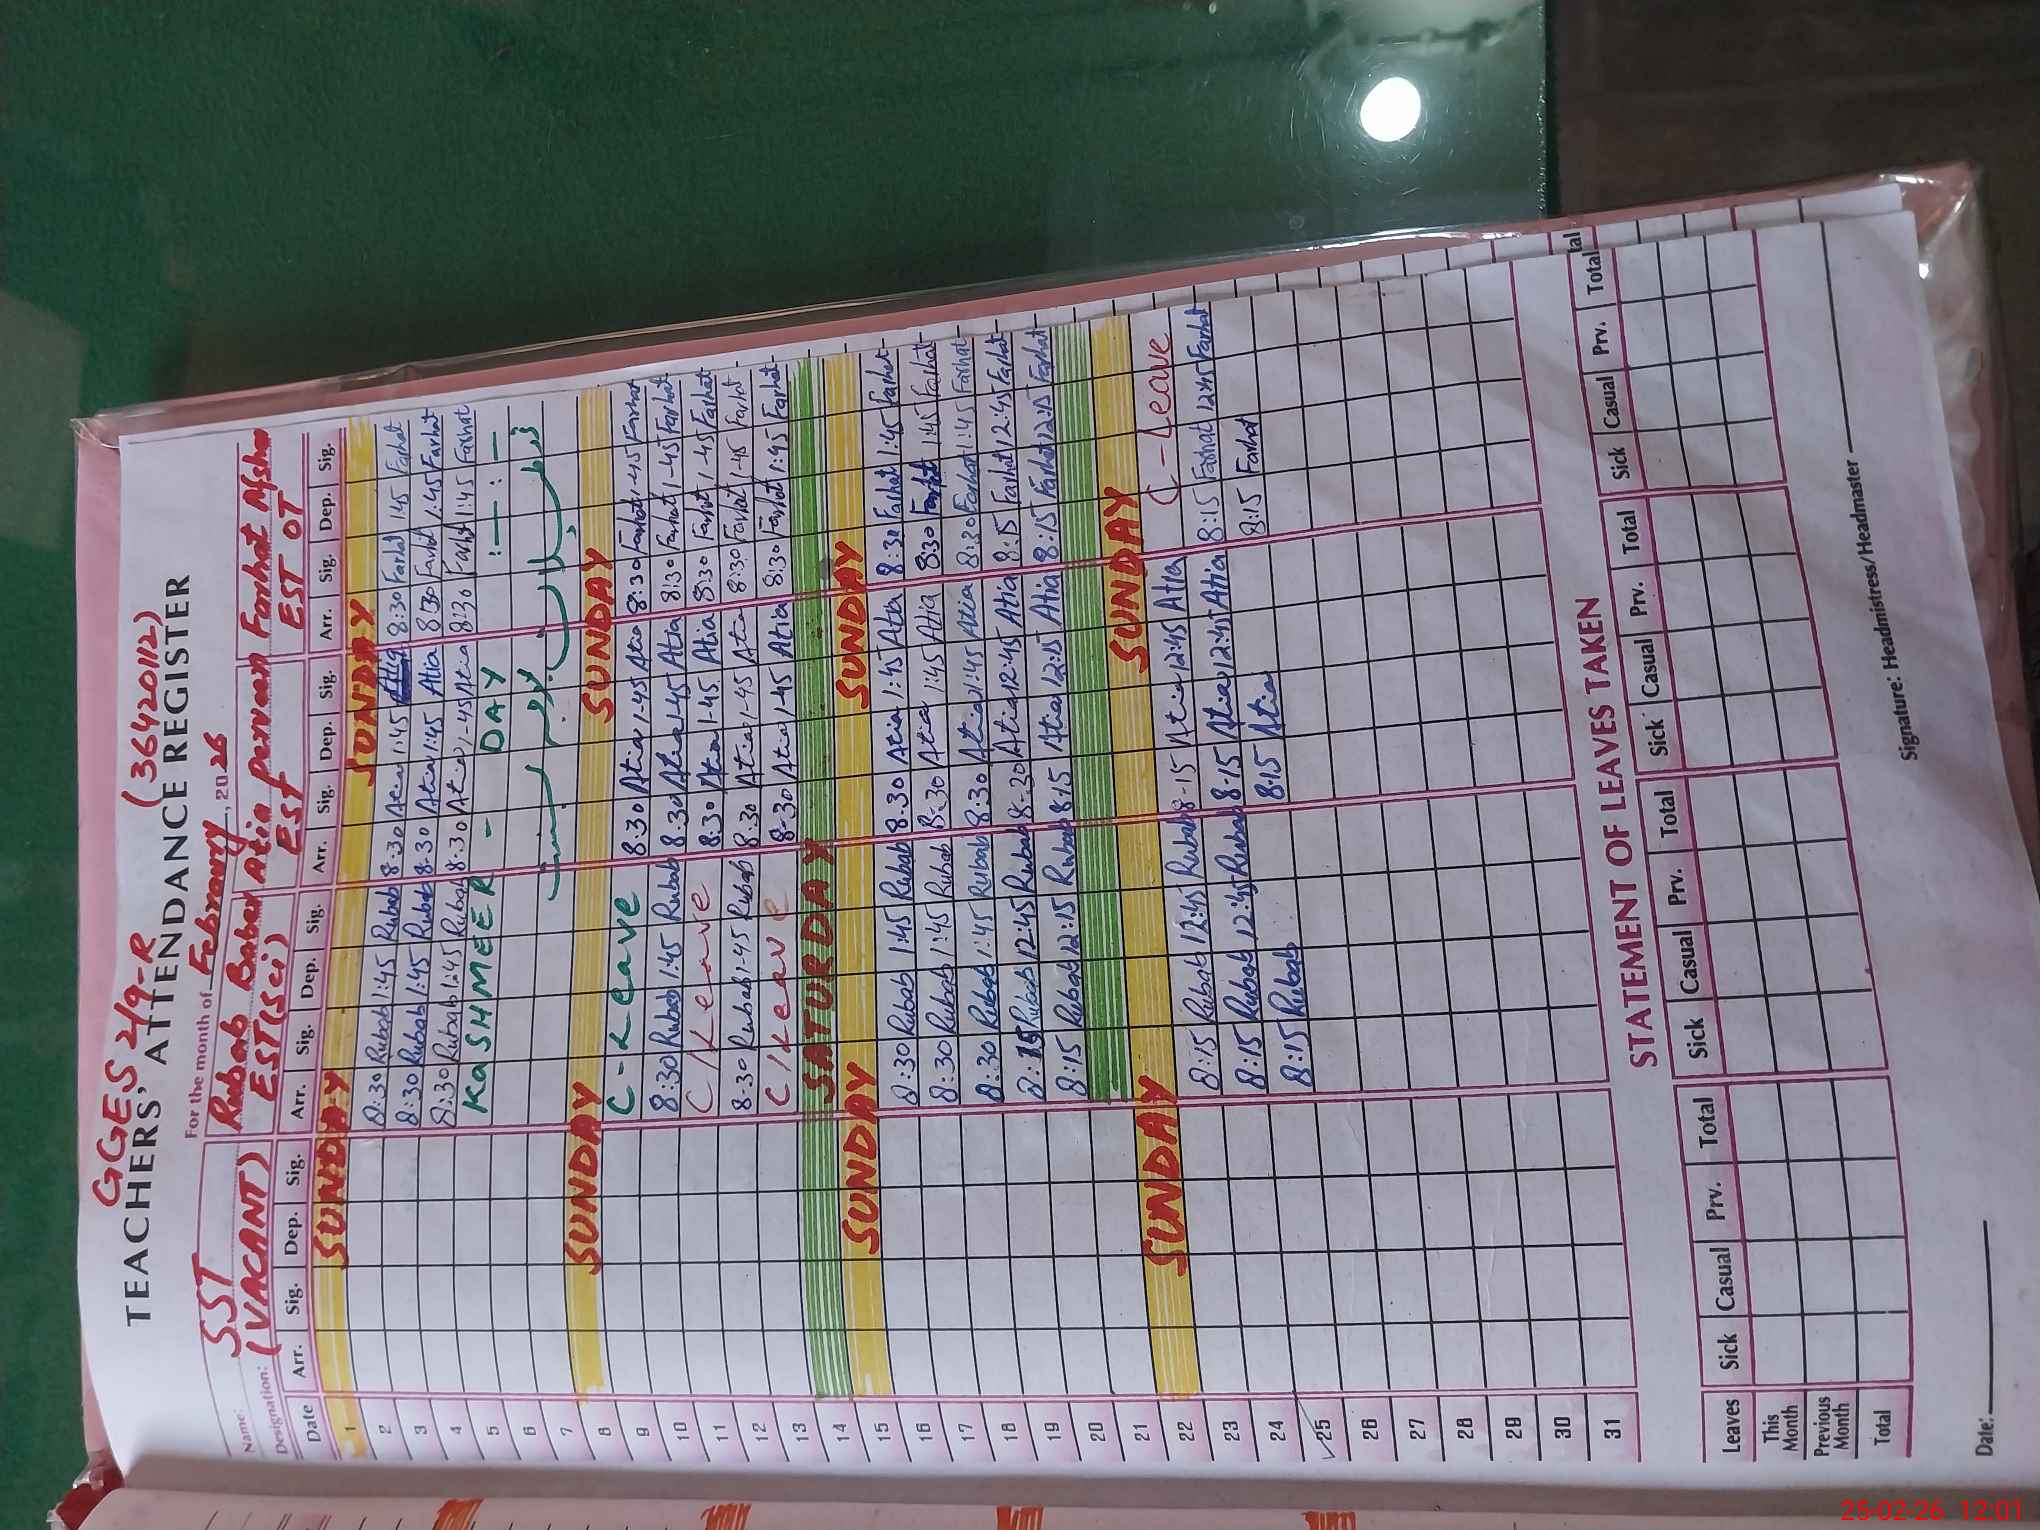 GGES 2/9-R (36420112)
TEACHERS' ATTENDANCE REGISTER
For the month of February, 2026
Name: SST Rubab Babar Atia Parveen Farhat Nisha
Designation: (VACANT) EST(Sci) EST EST OT
Date Arr. Sig. Dep. Sig. Arr. Sig. Dep. Sig. Arr. Sig. Dep. Sig. Arr. Sig. Dep. Sig.
1 SUNDAY SUNDAY
2 8:30 Rubab 1:45 Rubab 8:30 Atia 1:45 Atia 8:30 Farhat 1:45 Farhat
3 8:30 Rubab 1:45 Rubab 8:30 Atia 1:45 Atia 8:30 Farhat 1:45 Farhat
4 8:30 Rubab 1:45 Rubab 8:30 Atia 1-45 Atia 8:30 Farhat 1:45 Farhat
5 KaSHMEER - DAY
6
7
8 SUNDAY SUNDAY
9 C-Leave 8.30 Atia 1-45 Atia 8:30 Farhat 1-45 Farhat
10 8:30 Rubab 1:45 Rubab 8.30 Atia 1-45 Atia 8:30 Farhat 1-45 Farhat
11 C/Leave 8.30 Atia 1-45 Atia 8:30 Farhat 1-45 Farhat
12 8-30 Rubab 1-45 Rubab 8.30 Atia 1-45 Atia 8:30 Farhat 1-45 Farhat
13 C/Leave 8-30 Atia 1-45 Atia 8:30 Farhat 1:45 Farhat
14 SATURDAY
15 SUNDAY SUNDAY
16 8:30 Rubab 1:45 Rubab 8.30 Atia 1:45 Atia 8:30 Farhat 1:45 Farhat
17 8:30 Rubab 1:45 Rubab 8.30 Atia 1:45 Atia 8:30 Farhat 1:45 Farhat
18 8:30 Rubab 1:45 Rubab 8:30 Atia 1:45 Atia 8:30 Farhat 1:45 Farhat
19 8:15 Rubab 12:45 Rubab 8-30 Atia 12:45 Atia 8:15 Farhat 12:45 Farhat
20 8:15 Rubab 12:15 Rubab 8:15 Atia 12:15 Atia 8:15 Farhat 12:15 Farhat
21
22 SUNDAY SUNDAY
23 8:15 Rubab 12:45 Rubab 8-15 Atia 12:45 Atia C-Leave
24 8:15 Rubab 12:45 Rubab 8:15 Atia 12:45 Atia 8:15 Farhat 12:45 Farhat
25 8:15 Rubab 8:15 Atia 8:15 Farhat
26
27
28
29
30
31
STATEMENT OF LEAVES TAKEN
Leaves Sick Casual Prv. Total Sick Casual Prv. Total Sick Casual Prv. Total Sick Casual Prv. Total
This Month
Previous Month
Total
Date: Signature: Headmistress/Headmaster
25-02-26 12:01